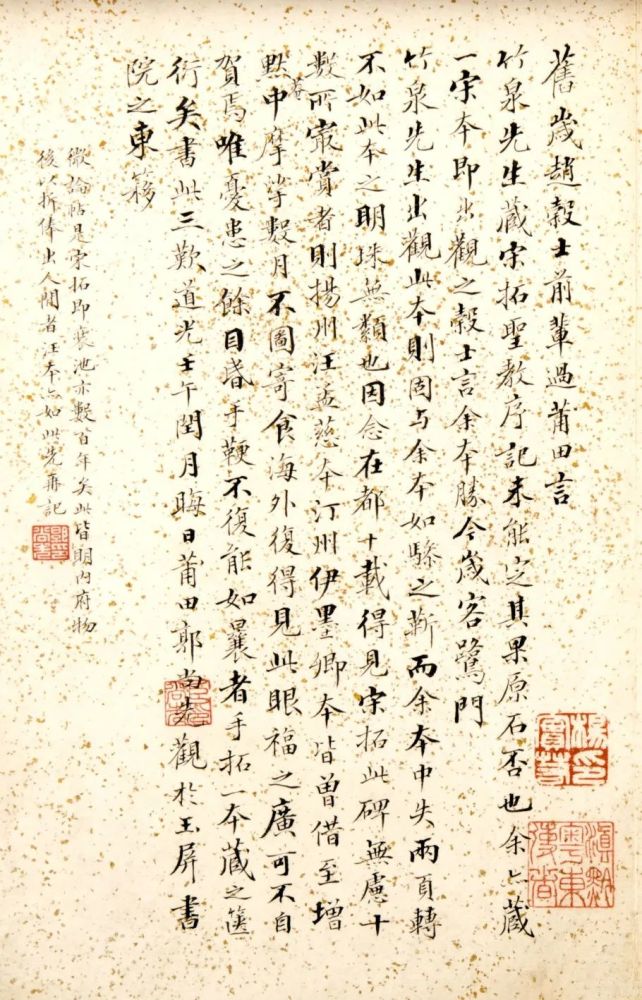 舊歲趙穀士前輩過莆田言
竹泉先生藏宋拓聖教序記未能定其果原石否也余亦藏
一宋本即出觀之穀士言余本勝今歲客鷺門
竹泉先生出觀此本則固与余本如驂之靳而余本中失兩頁轉
不如此本之明珠無纇也因念在都十載得見宋拓此碑無慮十
數所最賞者則揚州汪孟慈本汀州伊墨卿本皆曾借至增
默盦中摩挲數月不圖寄食海外復得見此眼福之廣可不自
賀焉唯憂患之餘目昏手鞕不復能如曩者手拓一本藏之篋
衍矣書此三歎道光壬午閏月晦日莆田郭尚先觀於玉屏書
院之東簃
微論帖是宋拓即裝池亦數百年矣此皆明內府物
後以折俸出人間者汪本亦如此先再記
楊印